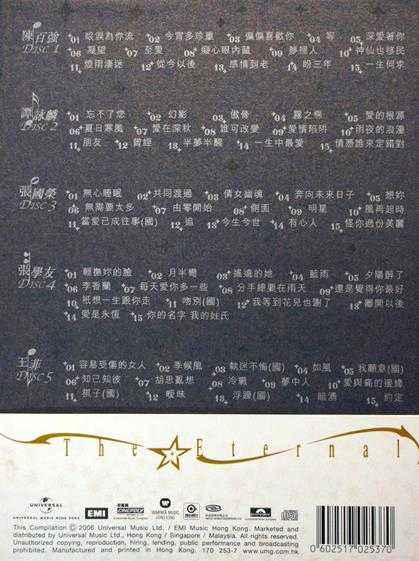 陳百強 DISC 1
01 眼淚為你流 02 今宵多珍重 03 偏偏喜歡你 04 等 05 深愛著你
06 凝望 07 至愛 08 癡心眼內藏 09 夢裡人 10 神仙也移民
11 煙雨淒迷 12 從今以後 13 感情到老 14 盼三年 15 一生何求
譚詠麟 DISC 2
01 忘不了您 02 幻影 03 傲骨 04 霧之戀 05 愛的根源
06 夏日寒風 07 愛在深秋 08 誰可改變 09 愛情陷阱 10 雨夜的浪漫
11 朋友 12 曾經 13 半夢半醒 14 一生中最愛 15 情憑誰來定錯對
張國榮 DISC 3
01 無心睡眠 02 共同渡過 03 倩女幽魂 04 奔向未來日子 05 想妳
06 無需要太多 07 由零開始 08 側面 09 明星 10 風再起時
11 當愛已成往事(國) 12 追 13 今生今世 14 有心人 15 怪你過份美麗
張學友 DISC 4
01 輕撫妳的臉 02 月半彎 03 遙遠的她 04 藍雨 05 夕陽醉了
06 李香蘭 07 每天愛你多一些 08 分手總要在雨天 09 還是覺得你最好
10 祗想一生跟你走 11 吻別(國) 12 我等到花兒也謝了 13 離開以後
14 愛是永恆 15 你的名字 我的姓氏
王菲 DISC 5
01 容易受傷的女人 02 季候風 03 執迷不悔(國) 04 如風 05 我願意(國)
06 知己知彼 07 胡思亂想 08 冷戰 09 夢中人 10 愛與痛的邊緣
11 棋子(國) 12 曖昧 13 浮躁(國) 14 暗湧 15 約定
The Eternal
UNIVERSAL
UNIVERSAL MUSIC HONG KONG
EMI
WARNER MUSIC
HONG KONG
This Compilation ℗ 2006 Universal Music Ltd. / EMI Music Hong Kong. Marketed and
distributed by Universal Music Ltd., Hong Kong / Singapore / Malaysia. All Rights Reserved.
Unauthorized copying, reproduction, hiring, lending, public performance and broadcasting
prohibited. Manufactured and printed in Hong Kong. 170 253-7 www.umg.com.hk
0 602517 025370